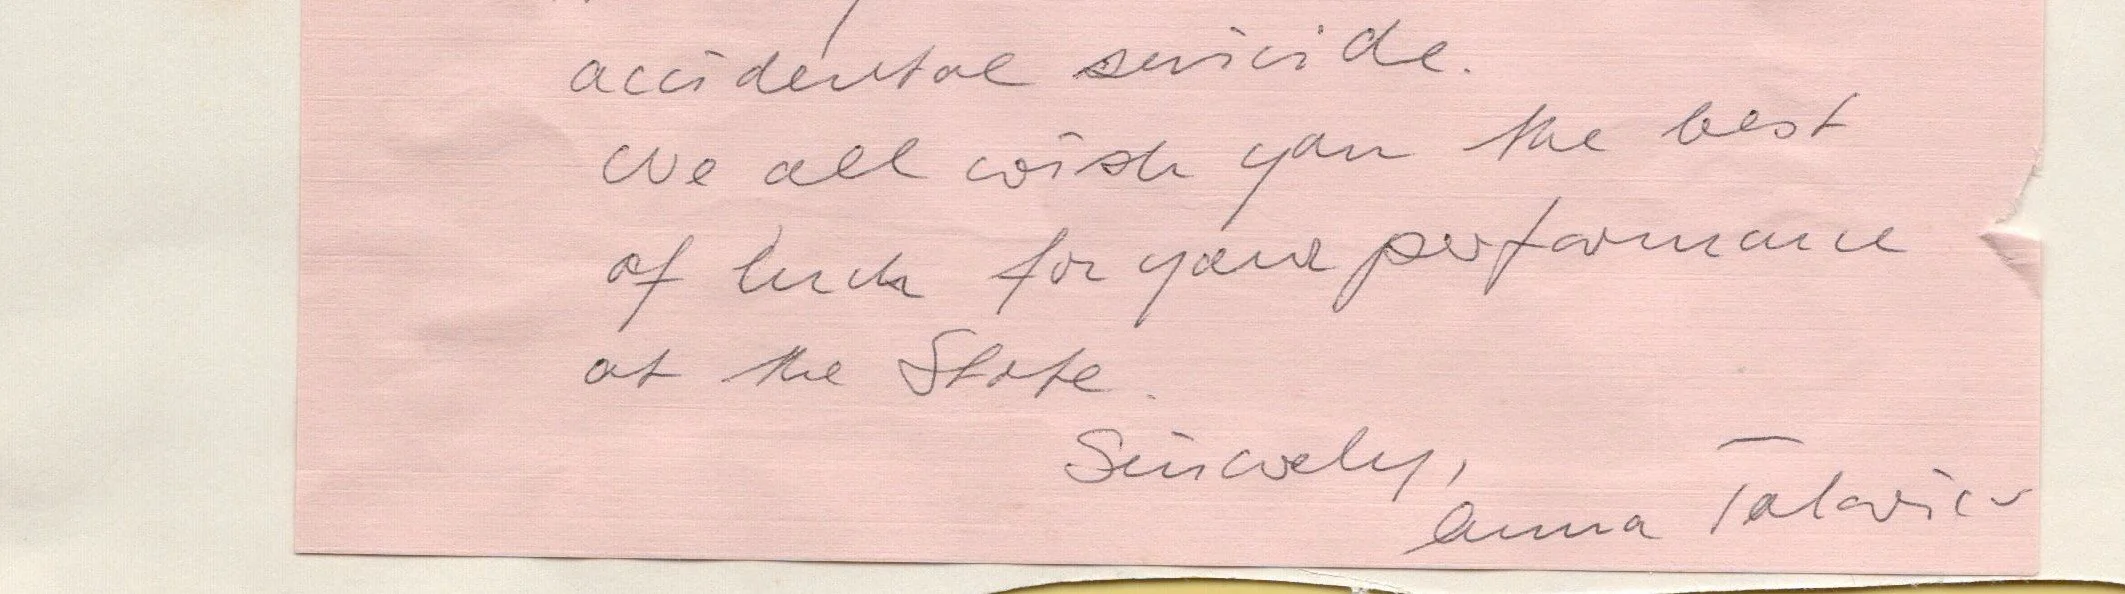 accidental suicide.
We all wish you the best
of luck for your performance
at the State.
Sincerely,
Anna